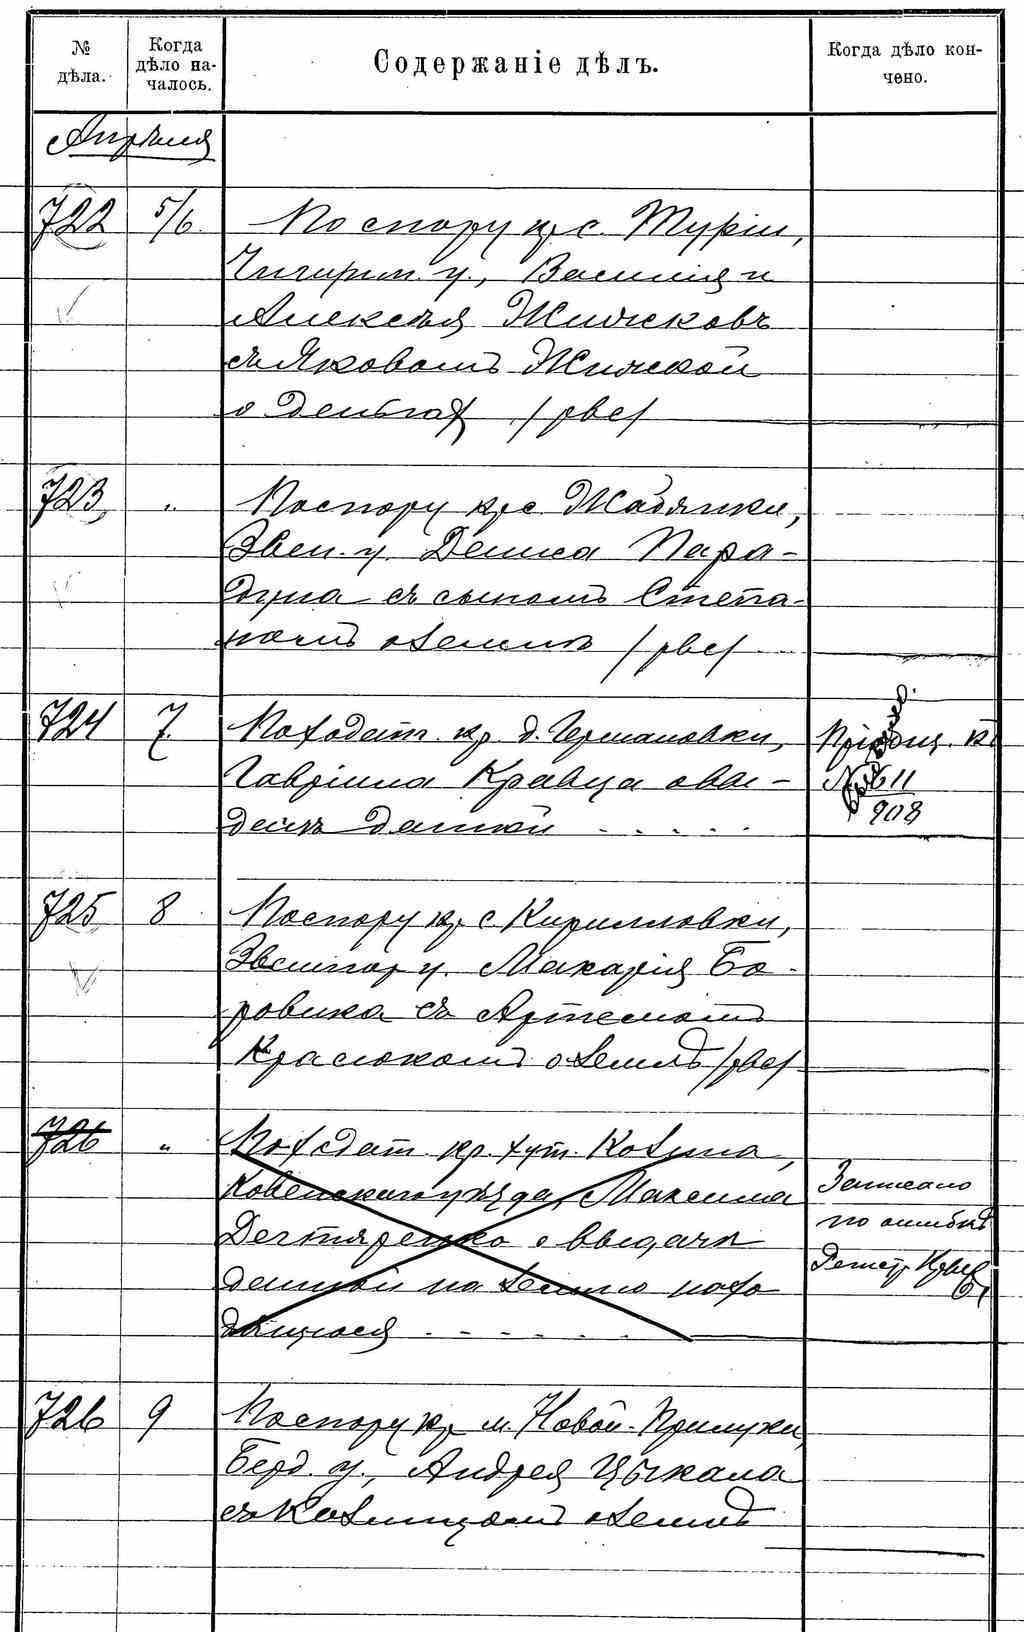 № дѣла.
Когда дѣло началось.
Содержаніе дѣлъ.
Когда дѣло кончено.
Апрѣля
722 5/6. По спору кр. с. Туріи,
Чигирин. у., Василія и
Алексѣя
съ Яковомъ
о деньгах /рве/
723 „ По спору кр. с. Жабянки,
Звен. у. Дениса Пара-
дуна съ сыномъ Степа-
номъ о землѣ /рве/
724 7. По ходат. кр. д. Германовки,
Гавріила Кравца о вы-
дачѣ данной . . . . .
№ 611
908
725 8 По спору кр. с. Кирилловки,
Звенигор. у. Макарія Бо-
ровика съ Артемомъ
Краслокомъ о землѣ /рве/
726 „ По ходат. кр. хут. Козина,
уѣзда, Максима
Дегтяренко о выдачѣ
данной на землю нахо
дящуюся . . . . . .
Записано
по ошибкѣ
Регистр.
726 9 По спору кр. м. Новой-Прилуки,
Берд. у., Андрея Цыкала
съ Казимиромъ о землѣ